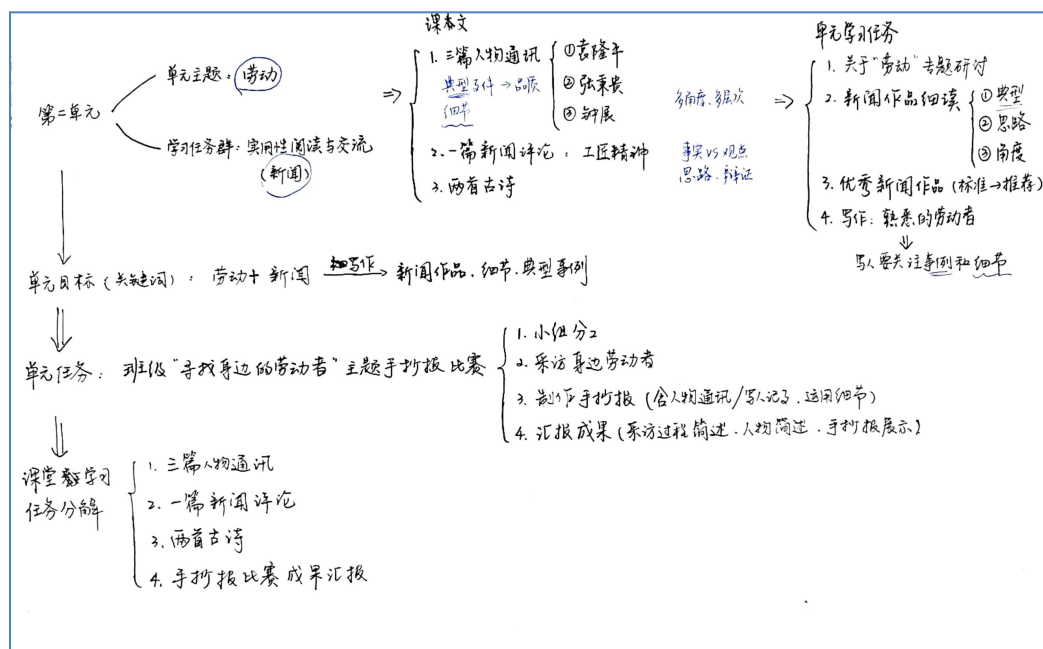 课本文
单元学习任务
单元主题：劳动
第二单元
学习任务群：实用性阅读与交流
（新闻）
1. 三篇人物通讯
①袁隆平
②张秉贵
③钟扬
典型事件→品质
细节
多角度、多层次
2. 一篇新闻评论：工匠精神
事实VS观点
思路、辩证
3. 两首古诗
1. 关于“劳动”专题研讨
2. 新闻作品细读
①典型
②思路
③角度
3. 优秀新闻作品（标准→推荐）
4. 写作：熟悉的劳动者
写人要关注事例和细节
单元目标（关键词）：劳动+新闻 写作 新闻作品、细节、典型事例
单元任务：班级“寻找身边的劳动者”主题手抄报比赛
1. 小组分工
2. 采访身边劳动者
3. 制作手抄报（含人物通讯/写人记事、运用细节）
4. 汇报成果（采访过程简述、人物简述、手抄报展示）
课堂学习
任务分解
1. 三篇人物通讯
2. 一篇新闻评论
3. 两首古诗
4. 手抄报比赛成果汇报